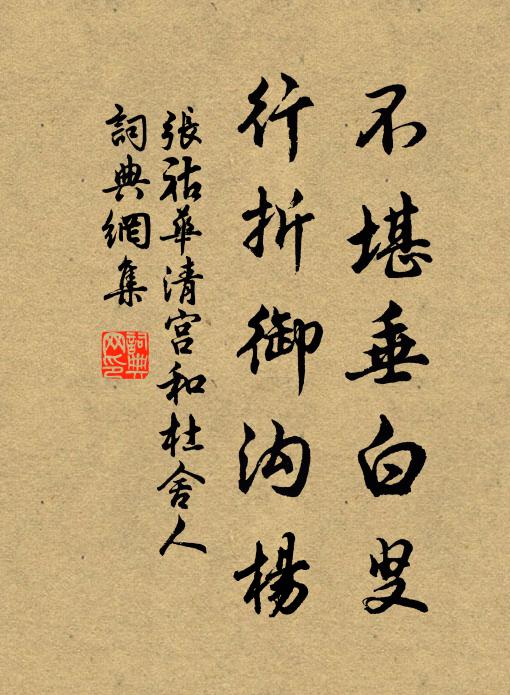 不堪垂白叟
行折御沟楊
張祜華清宫和杜舍人
詞典網集
詞典
网印